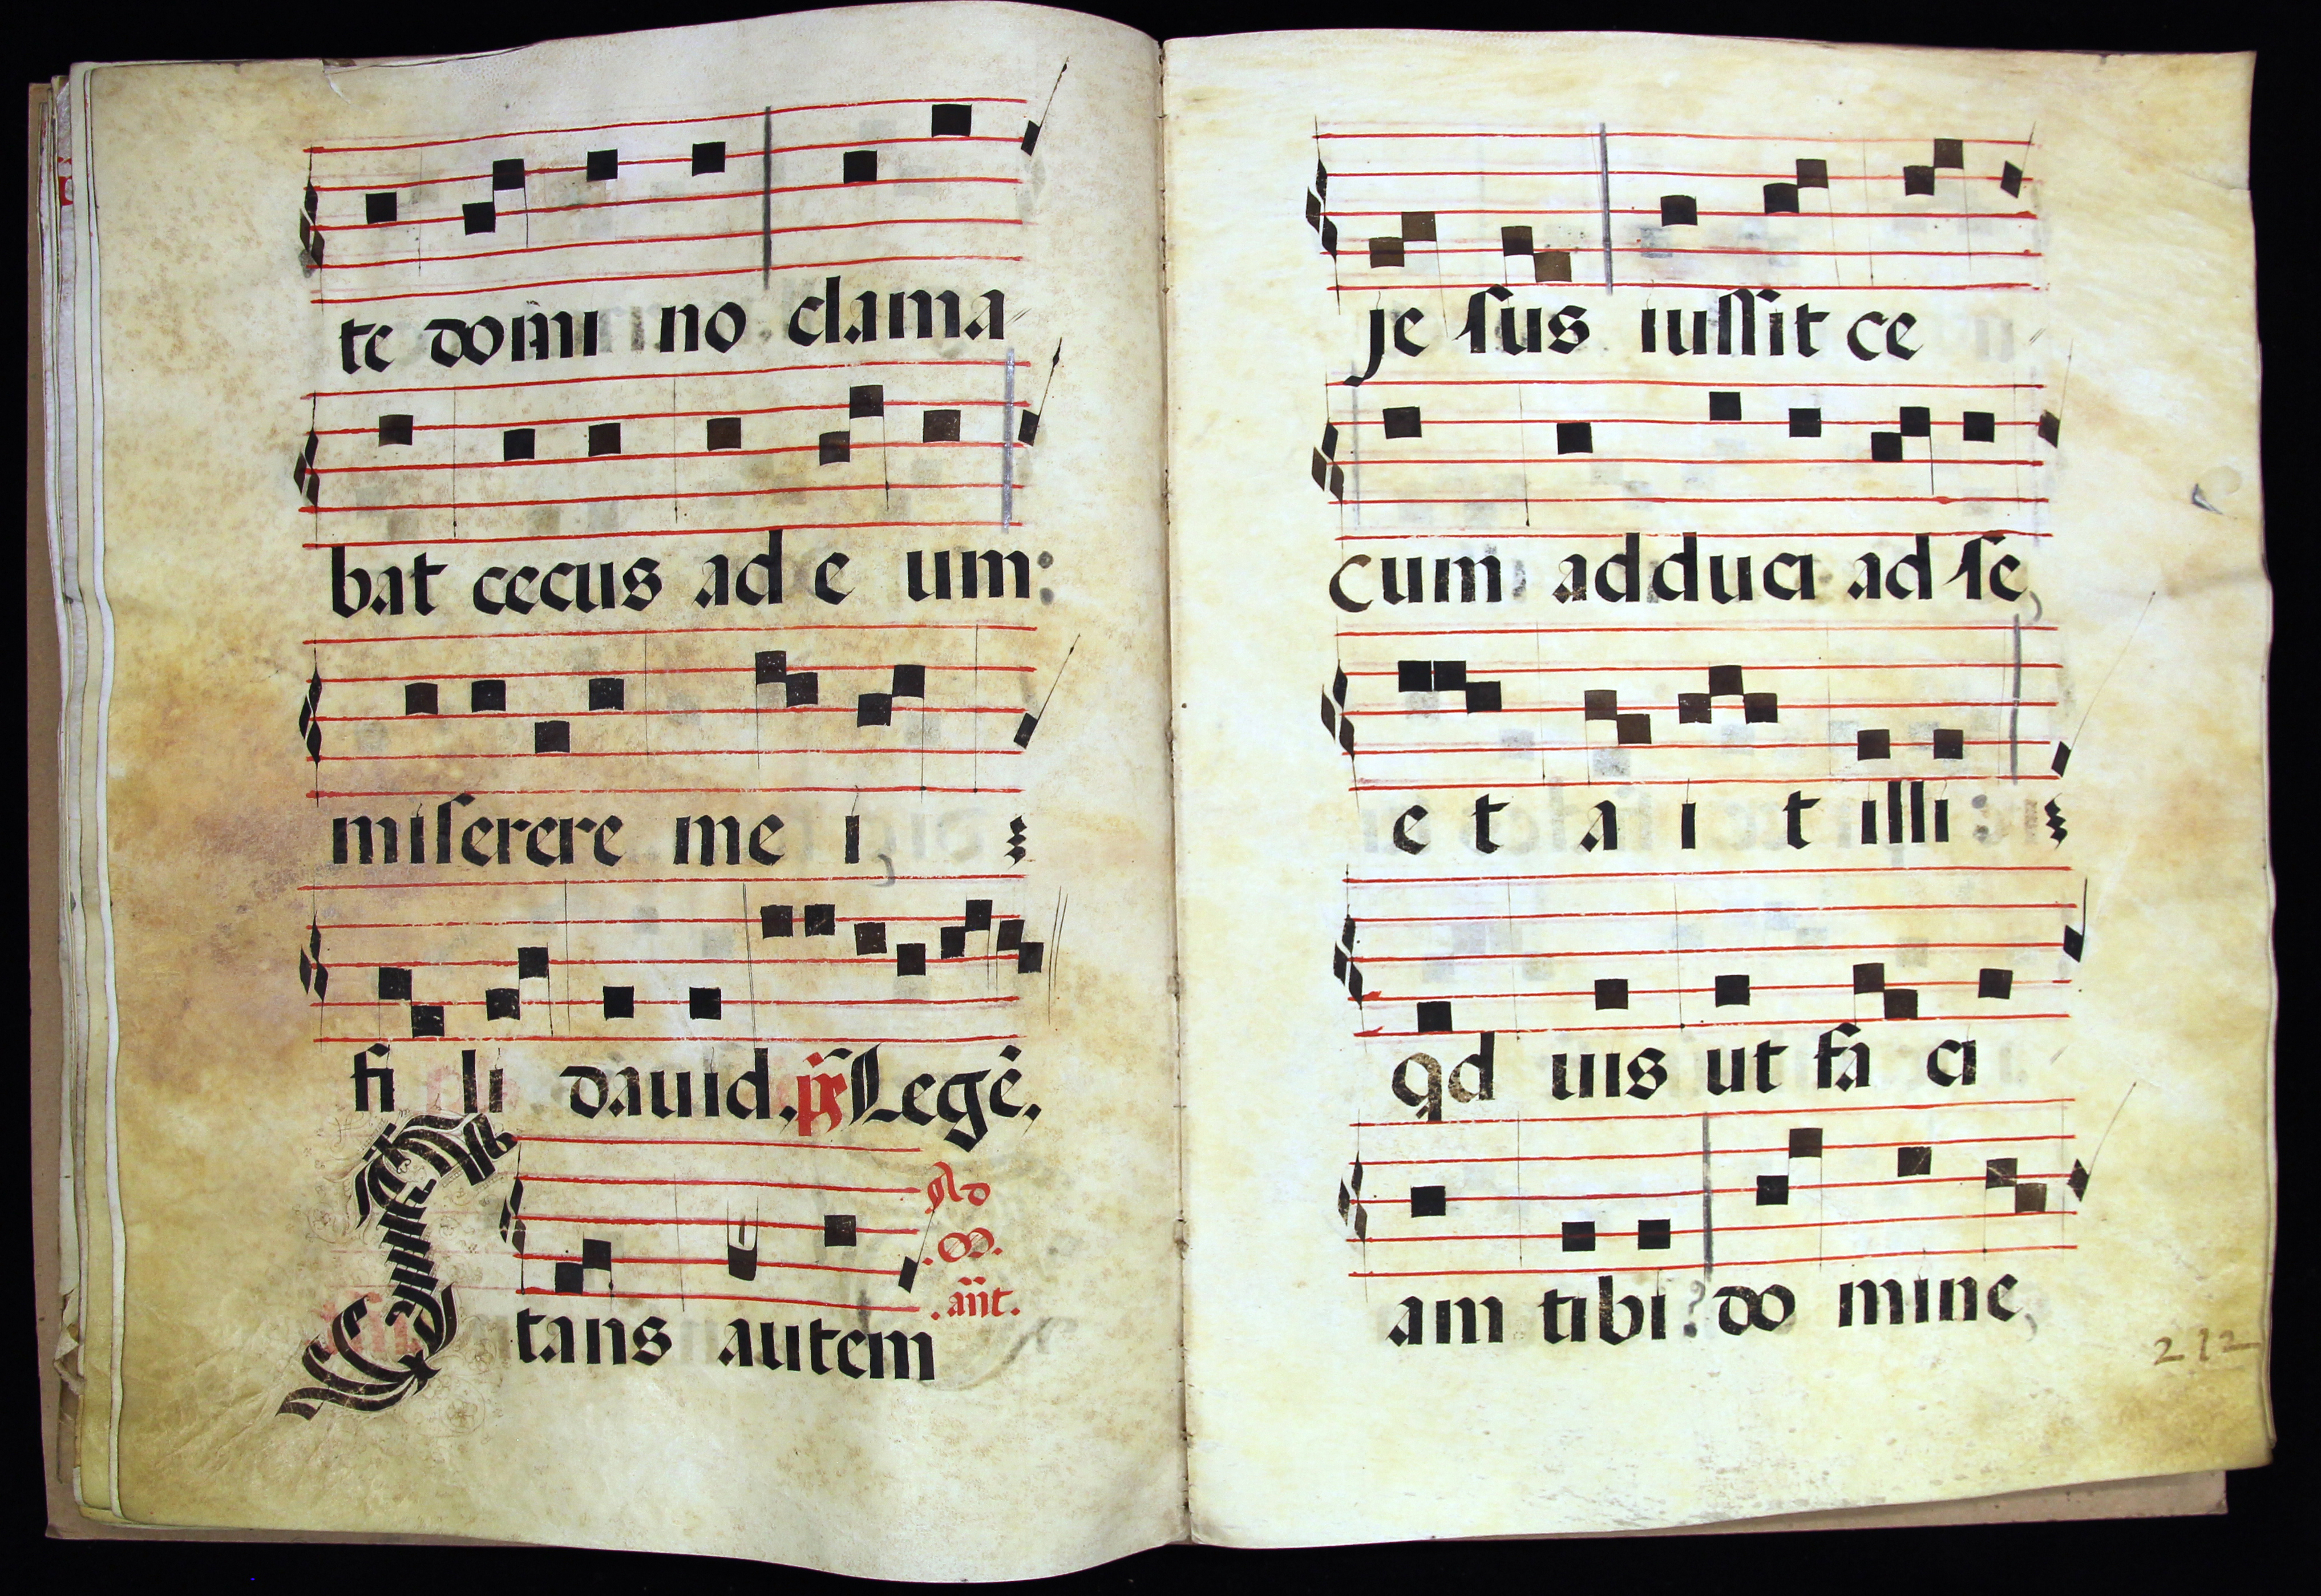 te domi no clama
bat cecus ad e um:
miserere me i,
fi li dauid. ps Legē.
Ad
.m.
.añt.
Stans autem
je sus iussit ce
cum adduci ad se,
e t a i t illi:
qd uis ut fa ci
am tibi? do mine,
212